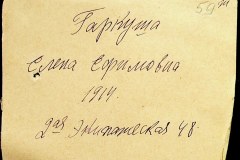 59
Гаркуша
Елена Ефимовна
1914.
2ая Экипажеская 48.